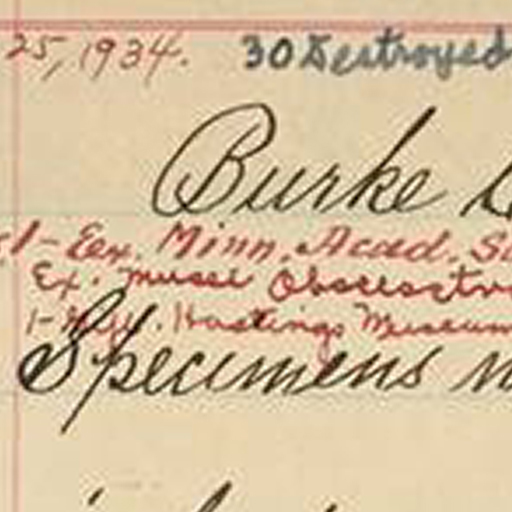 25, 1934. 30 Destroyed
Burke
1- Ex. Minn. Acad.
Ex. musei
1- Hastings Museum
Specimens